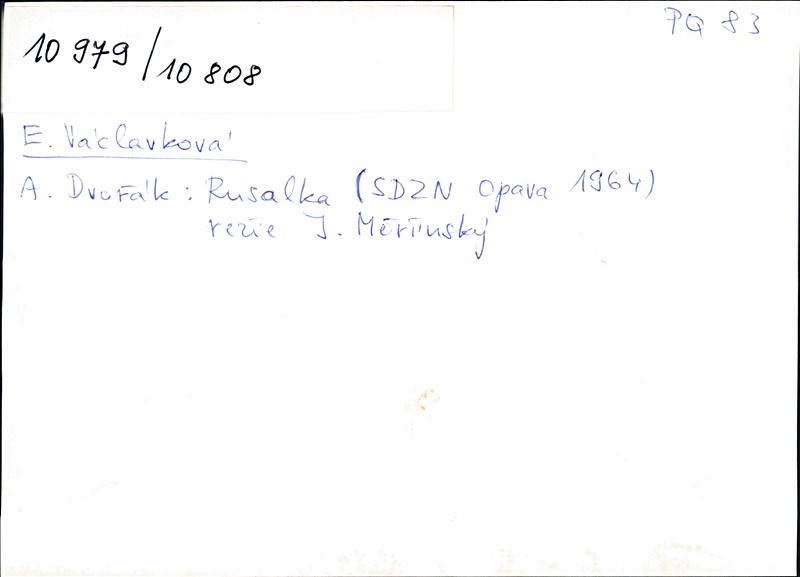 PQ 83
10 979/10 808
E. Václavková
A. Dvořák: Rusalka (SDZN Opava 1964)
režie J. Měřínský